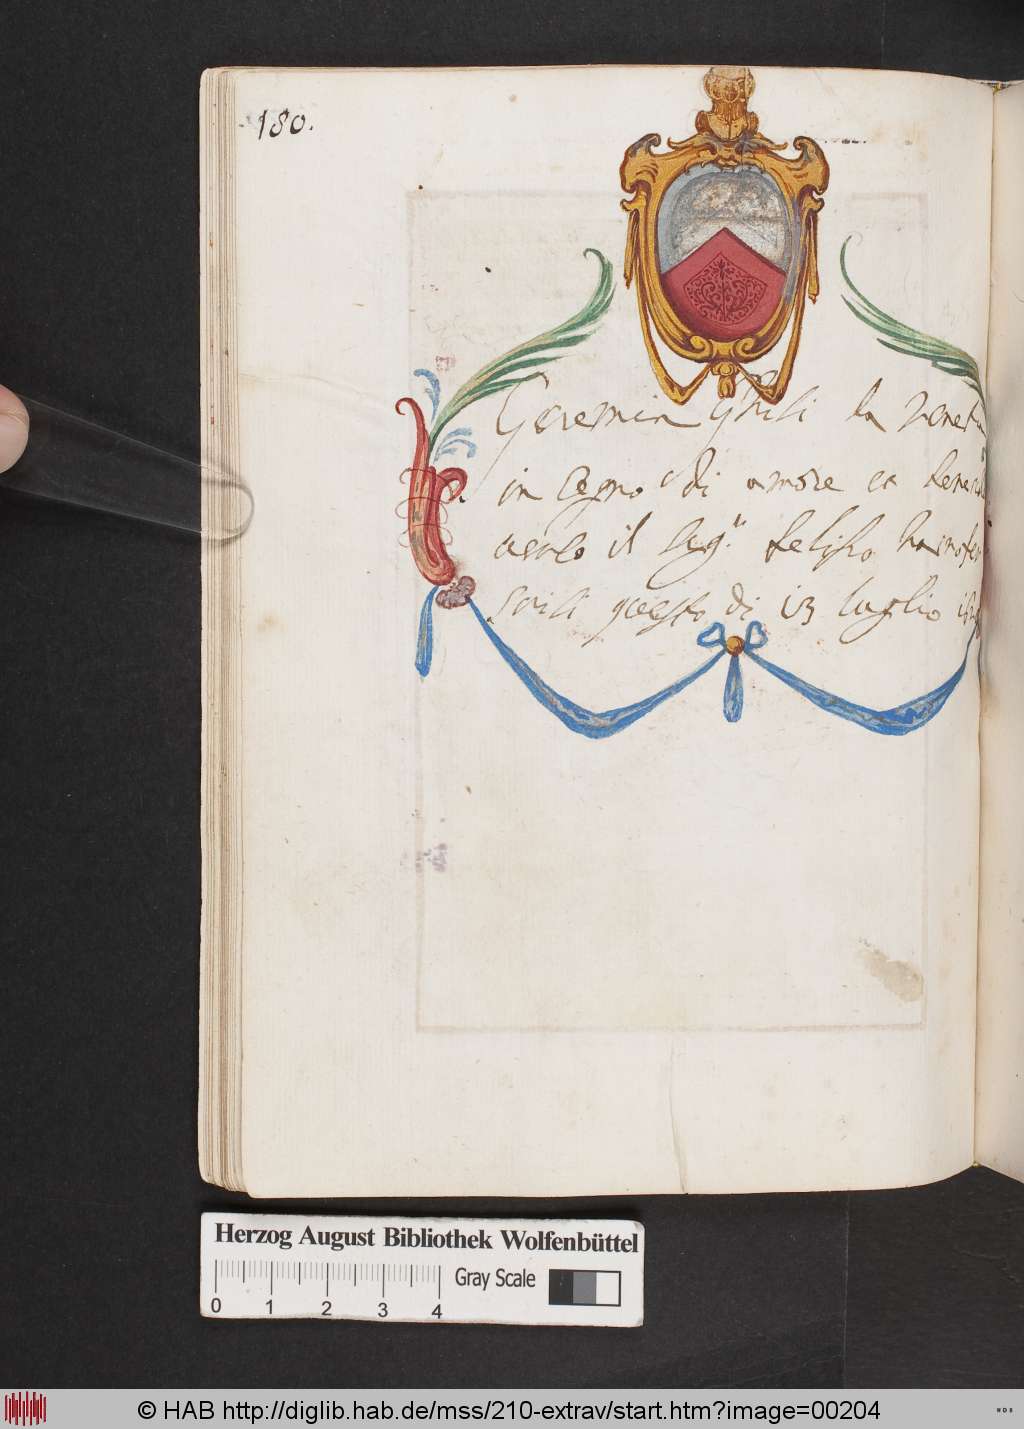 180.
Geremia Ghisi da
in segno di amore et
verso il sigr. felisso
scrisi questo di 13 luglio
Herzog August Bibliothek Wolfenbüttel
Gray Scale
0 1 2 3 4
© HAB http://diglib.hab.de/mss/210-extrav/start.htm?image=00204
HAB